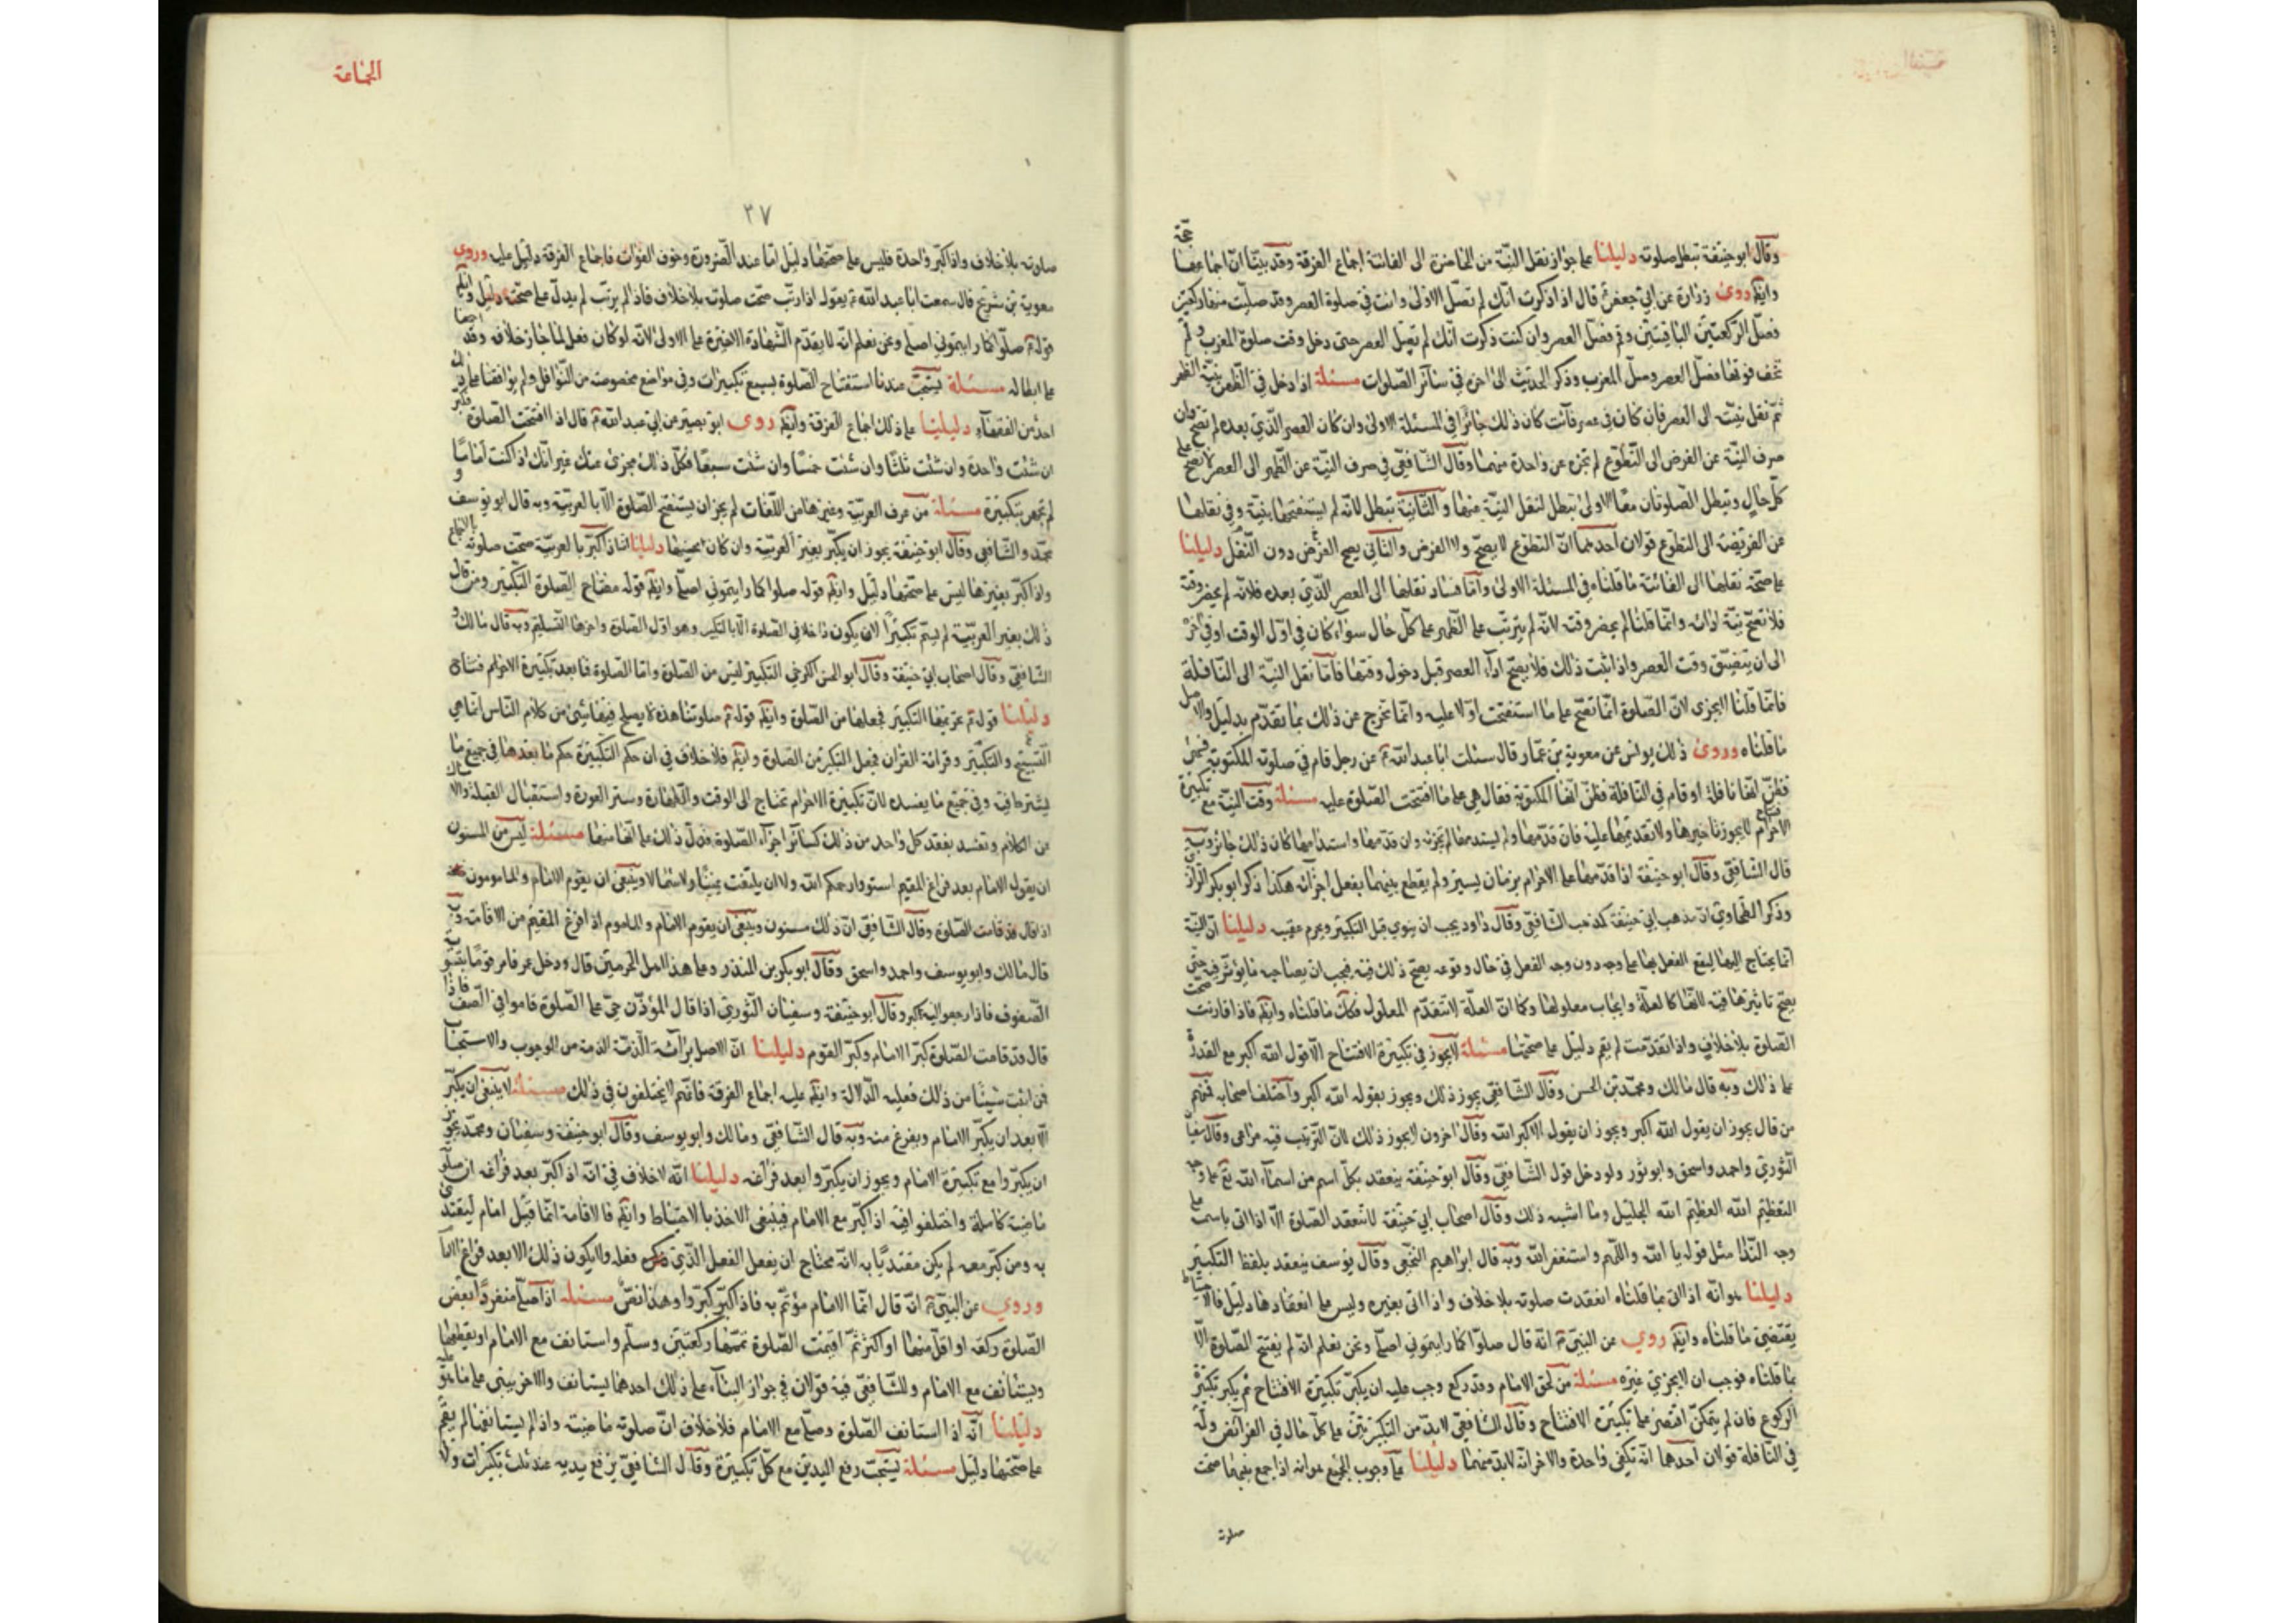 وقال ابو حنيفة تبطل صلوته دليلنا على جواز نقل النية من الحاضرة الى الفائتة اجماع الفرقة وقد بينا ان اجماعها
حجة
وايضا روى زرارة عن ابي جعفر ع قال اذا ذكرت انك لم تصل الاولى وانت في صلوة العصر وقد صليت منها ركعتين
فصل الركعتين الباقيتين وقم فصل العصر وان كنت ذكرت انك لم تصل العصر حتى دخل وقت صلوة المغرب ولم
تخف فوتها فصل العصر وصل المغرب وذكر الحديث الى اخره في سائر الصلوات مسئلة اذا دخل في الظهر بنية الظهر
ثم نقل نيته الى العصر فان كان في عصر فائت كان ذلك جائزا في المسئلة الاولى وان كان العصر الذي بعده لم يصح فان
صرف النية عن الفرض الى التطوع لم تجزه عن واحدة منهما وقال الشافعي في صرف النية عن الظهر الى العصر لا يصح على
كل حال وتبطل الصلوتان معا الاولى تبطل لنقل النية عنها والثانية تبطل لانه لم يستفتحها بنية وفي نقلها
عن الفريضة الى التطوع قولان احدهما ان التطوع لا يصح ولا الفرض والثاني يصح الفرض دون النفل دليلنا
على صحة نقلها الى الفائتة ما قلناه في المسئلة الاولى واما فساد نقلها الى العصر الذي بعده فلانه لم يحضر وقته
فلا تصح نية ادائه وانما قلنا لم يحضر وقته لانه لم يترتب على الظهر على كل حال سواء كان في اول الوقت او في اخره
الى ان يتضيق وقت العصر واذا ثبت ذلك فلا يصح اداء العصر قبل دخول وقتها فاما نقل النية الى النافلة
فانما قلنا لا يجزى لان الصلوة انما تصح على ما استفتحت اولا عليه وانما نخرج عن ذلك بما تقدم بدليل والاصل
ما قلناه وروى ذلك يونس عن معوية بن عمار قال سئلت ابا عبد الله ع عن رجل قام في صلوته المكتوبة فسهى
فظن انها نافلة او قام في النافلة فظن انها المكتوبة فقال هي على ما افتتحت الصلوة عليه مسئلة وقت النية مع تكبيرة
الاحرام لا يجوز تاخيرها ولا تقديمها عليه فان قدمها ولم يستدمها لم يجزه وان قدمها واستدامها كان ذلك جائزا وبه
قال الشافعي وقال ابو حنيفة اذا قدمها على الاحرام بزمان يسير ولم يقطع بينهما بفعل اجزأته هكذا ذكر ابو بكر الرازي
وذكر الطحاوي ان مذهب ابي حنيفة كمذهب الشافعي وقال داود يجب ان ينوي قبل التكبير ويحرم عقيبه دليلنا ان النية
انما يحتاج اليها ليقع الفعل بها على وجه دون وجه الفعل في حال وقوعه يصح ذلك فيه فيجب ان يصاحبه ما يؤثر فيه حتى
يصح تاثيرها فيه لانها كالعلة وايجاب معلولها وكما ان العلة لا تتقدم المعلول فكك ما قلناه وايضا فاذا قارنت صحت
الصلوة بلا خلاف واذا تقدمت لم يقم دليل على صحتها مسئلة لا يجوز في تكبيرة الافتتاح الا قول الله اكبر مع القدرة
على ذلك وبه قال مالك ومحمد بن الحسن وقال الشافعي يجوز ذلك ويجوز بقوله الله اكبر واختلف اصحابه فمنهم
من قال يجوز ان يقول الله اكبر ويجوز ان يقول الاكبر الله وقال اخرون لا يجوز ذلك لان الترتيب فيه مراعى وقال سفيان
الثوري واحمد واسحق وابو ثور وداود مثل قول الشافعي وقال ابو حنيفة ينعقد بكل اسم من اسماء الله تع على وجه
التعظيم الله العظيم الله الجليل وما اشبه ذلك وقال اصحاب ابي حنيفة لا تنعقد الصلوة الا اذا اتى باسمه على
وجه النداء مثل قوله يا الله واللهم واستغفر الله وبه قال ابراهيم النخعي وقال يوسف ينعقد بلفظ التكبير
دليلنا هو انه اذا اتى بما قلناه انعقدت صلوته بلا خلاف واذا اتى بغيره وليس على انعقادها دليل فالاحتياط
يقتضي ما قلناه وايضا روي عن النبي ص انه قال صلوا كما رايتموني اصلي ونحن نعلم انه لم يفتتح الصلوة الا
بما قلناه فوجب ان لا يجزي غيره مسئلة من لحق الامام وقد ركع وجب عليه ان يكبر تكبيرة الافتتاح ثم يكبر تكبيرة
الركوع فان لم يتمكن اقتصر على تكبيرة الافتتاح وقال الشافعي لا بد من التكبيرتين على كل حال في الفرائض وله
في النافلة قولان احدهما انه تكفي واحدة والاخر انه لابد منهما دليلنا على وجوب الجمع هو انه اذا جمع بينهما صحت
صلوته
الجماعة
٣٧
صلوته بلا خلاف واذا كبر واحدة فليس على صحتها دليل اما عند الضرورة وخوف الفوات فاجماع الفرقة دليل عليه وروى
معوية بن شريح قال سمعت ابا عبد الله ع يقول اذا رتب صحت صلوته بلا خلاف فاذا لم يرتب لم يدل على صحته دليل وايضا
قوله ع صلوا كما رايتموني اصلي ونحن نعلم انه لا يقدم الشهادة الاخيرة على الاولى لانه لو كان فعل لما جاز خلافه وقد اجمعنا
على ابطاله مسئلة يستحب عندنا استفتاح الصلوة بسبع تكبيرات وفي مواضع مخصوصة من النوافل ولم يوافقنا على ذلك
احد من الفقهاء دليلنا على ذلك اجماع الفرقة وايضا روى ابو بصير عن ابي عبد الله ع قال اذا افتتحت الصلوة فكبر
ان شئت واحدة وان شئت ثلثا وان شئت خمسا وان شئت سبعا فكل ذلك مجزى عنك غير انك اذا كنت اماما
لم تجهر بتكبيرة مسئلة من عرف العربية وغيرها من اللغات لم يجز ان يستفتح الصلوة الا بالعربية وبه قال ابو يوسف و
محمد والشافعي وقال ابو حنيفة يجوز ان يكبر بغير العربية وان كان يحسنها دليلنا انه اذا كبر بالعربية صحت صلوته بالاجماع
واذا كبر بغيرها ليس على صحتها دليل وايضا قوله صلوا كما رايتموني اصلي وايضا قوله مفتاح الصلوة التكبير ومن قال
ذلك بغير العربية لم يسم تكبيرا لان يكون داخلا في الصلوة الا بالتكبير وهو اول الصلوة واخرها التسليم وبه قال مالك و
الشافعي وقال اصحاب ابي حنيفة وقال ابو الحسن الكرخي التكبير ليس من الصلوة واما الصلوة فما بعد تكبيرة الاحرام
دليلنا قوله ع تحريمها التكبير فجعلها من الصلوة وايضا قوله ع صلوتنا هذه لا يصلح فيها شئ من كلام الناس انما هي
التسبيح والتكبير وقرائة القران فجعل التكبير من الصلوة وايضا فلا خلاف في ان حكم التكبيرة حكم ما بعدها في جميع ما
يشترط فيه وفي جميع ما يفسده لان تكبيرة الاحرام تحتاج الى الوقت والطهارة وستر العورة واستقبال القبلة والامساك
عن الكلام وتفسد بفقد كل واحد من ذلك كسائر اجزاء الصلوة فدل ذلك على انها منها مسئلة ليس من المسنون
ان يقول الامام بعد فراغ المقيم استووا رحمكم الله ولا ان يلتفت يمينا ولا شمالا وينبغي ان يقوم الامام والمامومون
اذا قال قد قامت الصلوة وقال الشافعي ان ذلك مسنون وينبغي ان يقوم الامام والماموم اذا فرغ المقيم من الاقامة وبه
قال مالك وابو يوسف واحمد واسحق وقال ابو بكر بن المنذر وعلى هذا اهل الحرمين قال ودخل عمر فامر قوما بتسوية
الصفوف فاذا رجعوا اليه كبر وقال ابو حنيفة وسفيان الثوري اذا قال المؤذن حي على الصلوة قاموا في الصف فاذا
قال قد قامت الصلوة كبر الامام وكبر القوم دليلنا ان الاصل برائة الذمة من الوجوب والاستحباب
فمن اثبت شيئا من ذلك فعليه الدلالة وايضا عليه اجماع الفرقة فانهم لا يختلفون في ذلك مسئلة لا ينبغي ان يكبر
الا بعد ان يكبر الامام ويفرغ منه وبه قال الشافعي ومالك وابو يوسف وقال ابو حنيفة وسفيان ومحمد يجوز
ان يكبروا مع تكبيرة الامام ويجوز ان يكبروا بعد فراغه دليلنا انه لا خلاف في انه اذا كبر بعد فراغه ان صلوته
ماضية كاملة واختلفوا فيه اذا كبر مع الامام فينبغي الاخذ بالاحتياط وايضا فالاقامة انما قيل امام ليقتدى
به ومن كبر معه لم يكن مقتديا به لانه محتاج ان يفعل الفعل الذي فعله ولا يكون ذلك الا بعد فراغ الامام
وروي عن النبي ص انه قال انما الامام مؤتم به فاذا كبر كبروا وهذا نص مسئلة اذا صلى منفردا بعض
الصلوة ركعة او اقل منها او اكثر ثم اقيمت الصلوة تممها ركعتين وسلم واستانف مع الامام او يقطعها
ويستانف مع الامام وللشافعي فيه قولان في جواز البناء على ذلك احدهما يستانف والاخر يبنى على ما هو عليه
دليلنا انه اذا استانف الصلوة وصلى مع الامام فلا خلاف ان صلوته ماضية واذا لم يستانفها لم يقم
على صحتها دليل مسئلة يستحب رفع اليدين مع كل تكبيرة وقال الشافعي يرفع يديه عند ثلث تكبيرات ولا